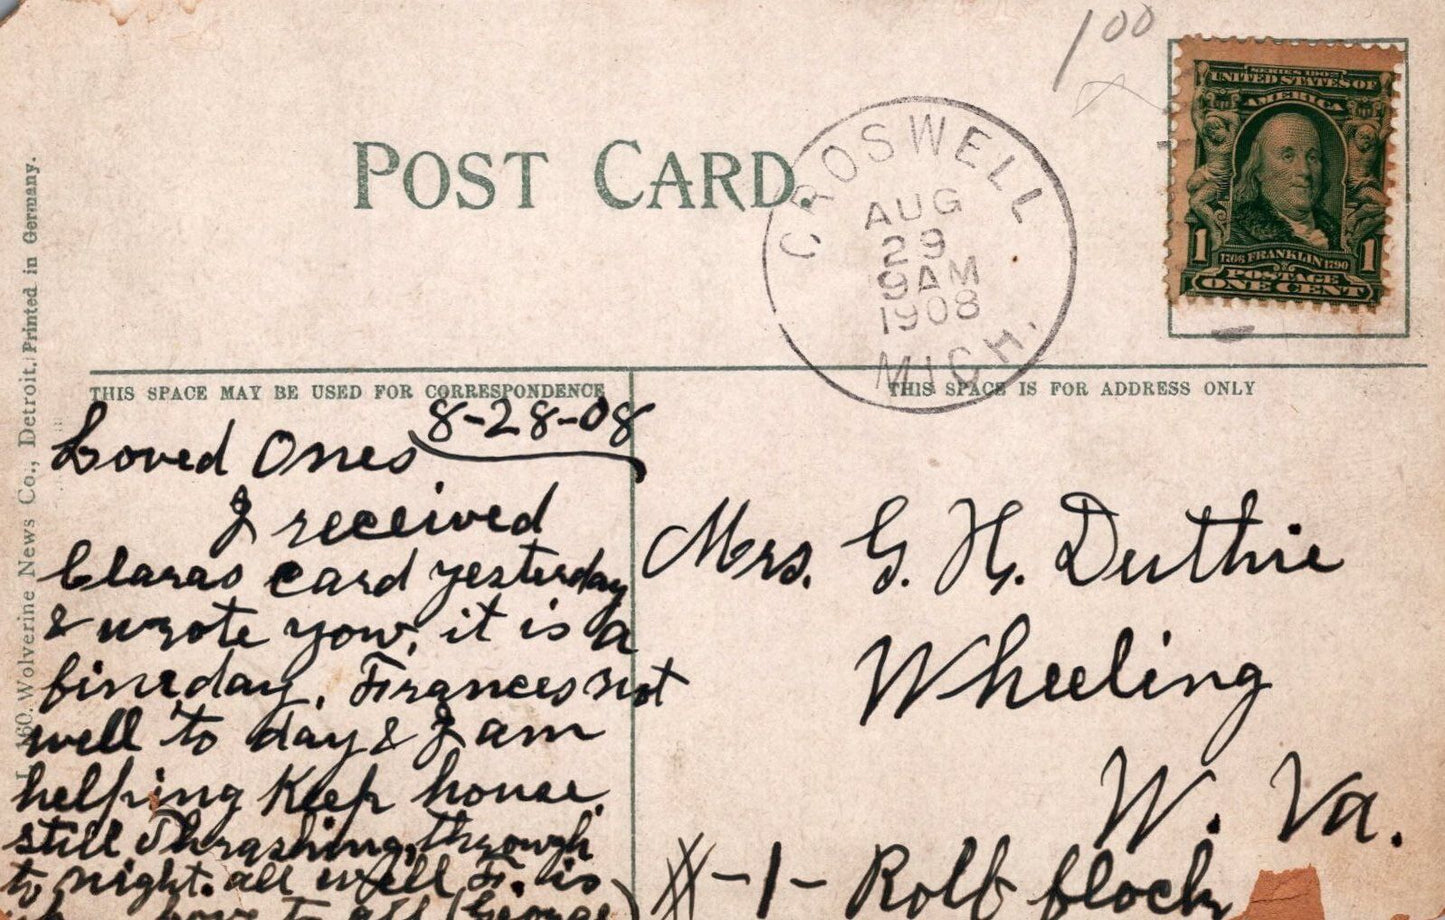 100
SERIES 1902
UNITED STATES OF
AMERICA
1 1
1706 FRANKLIN 1790
POSTAGE
ONE CENT
POST CARD.
CROSWELL
AUG
29
9AM
1908
MICH.
THIS SPACE MAY BE USED FOR CORRESPONDENCE
THIS SPACE IS FOR ADDRESS ONLY
8-28-08
Loved Ones
I received
Claras card yesterday
& wrote you, it is a
fine day, Frances not
well to day & I am
helping Keep house.
still Thrashing, through
to night. all well F. is
love to all (George
Mrs. G. H. Duthie
Wheeling
W. Va.
#-1- Rolf block
60. Wolverine News Co., Detroit. Printed in Germany.